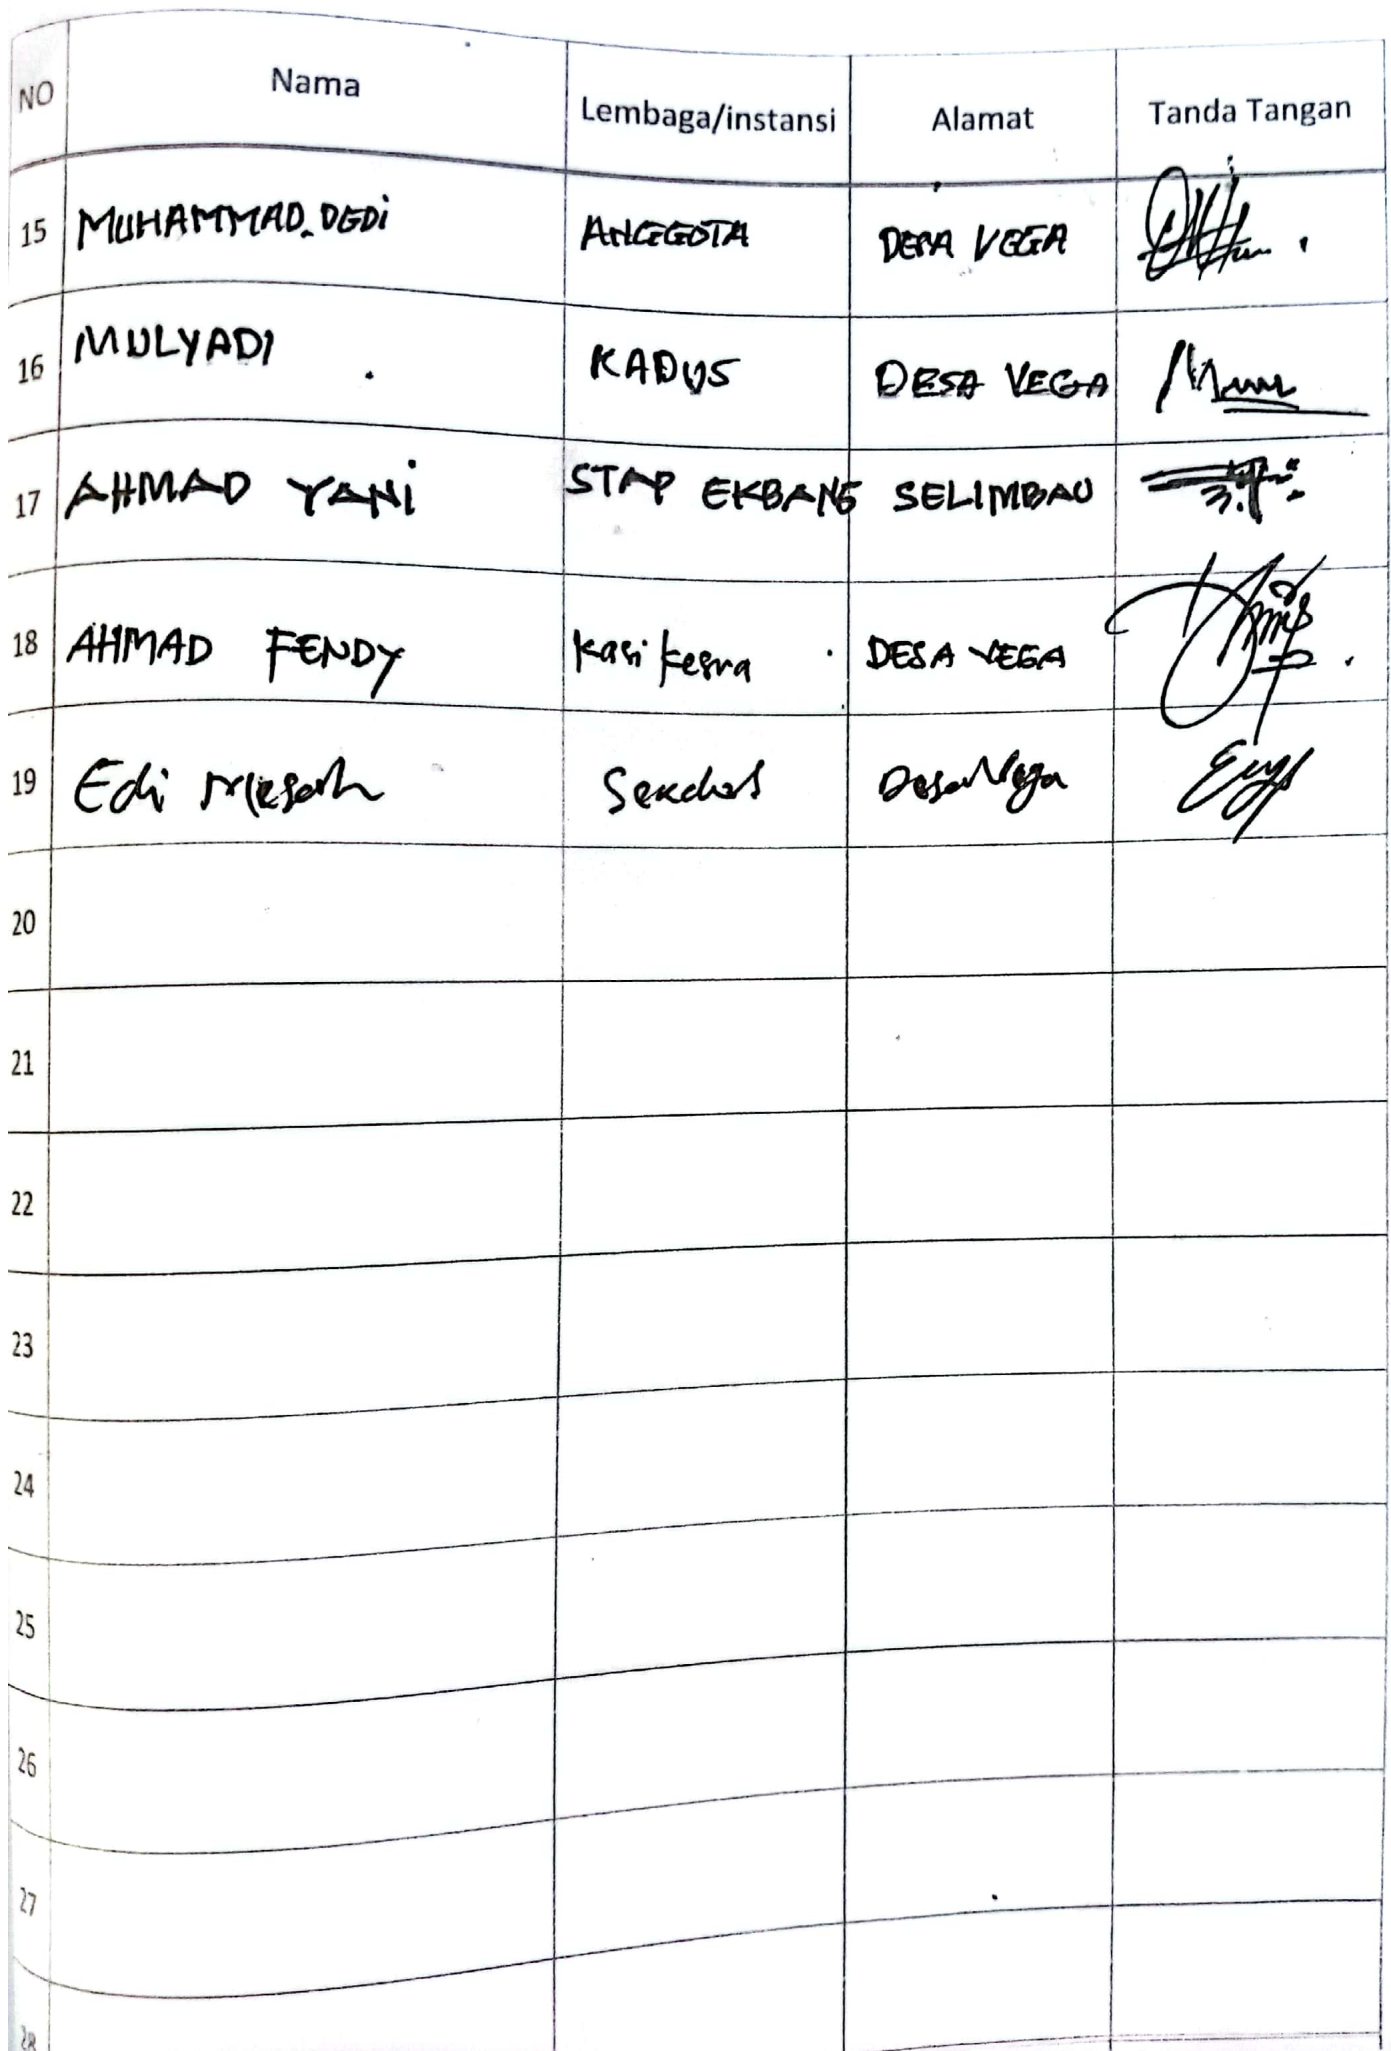 NO Nama Lembaga/instansi Alamat Tanda Tangan
15 MUHAMMAD DEDi ANGGOTA DESA VEGA
16 MULYADI KADUS DESA VEGA
17 AHMAD YANi STAP EKBANG SELIMBAU
18 AHMAD FENDY Kasi Kesra DESA VEGA
19 Edi Sekdes Desa Vega
20
21
22
23
24
25
26
27
28